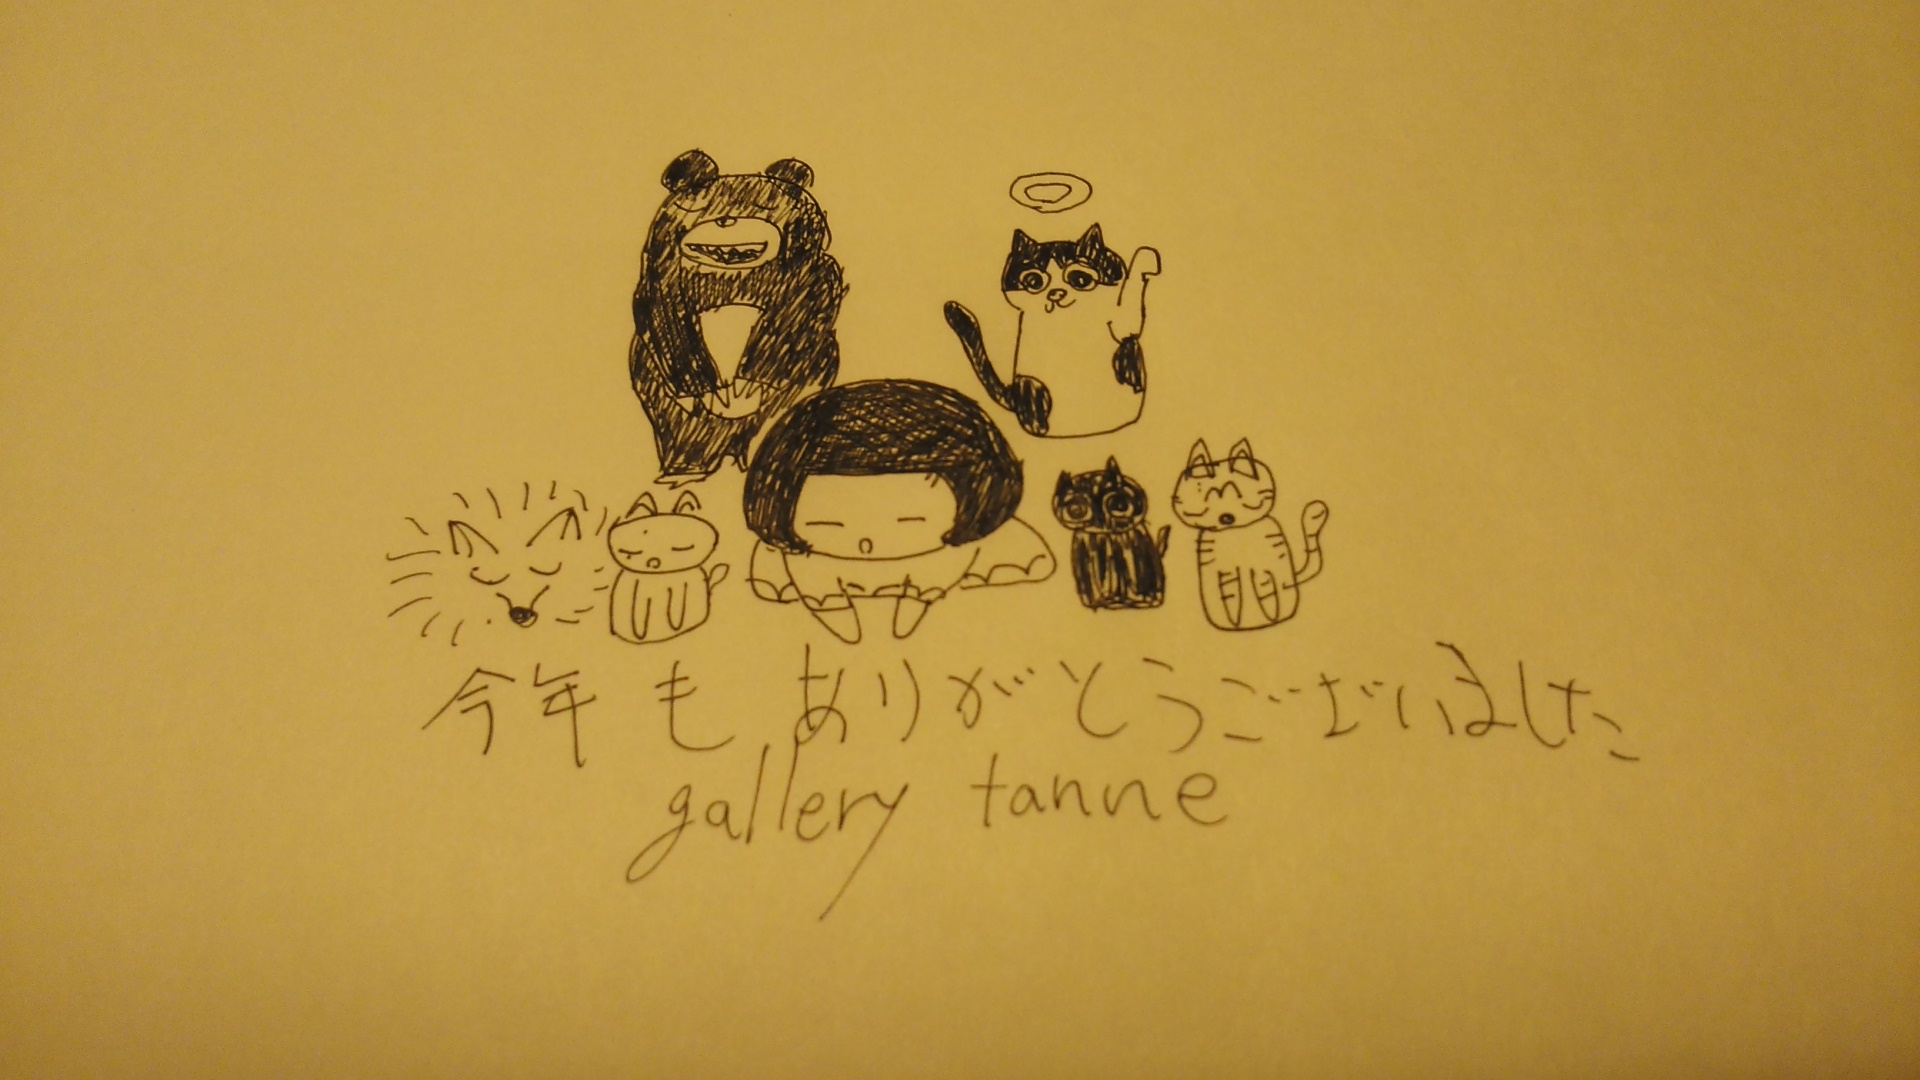 今年もありがとうございました
gallery tanne